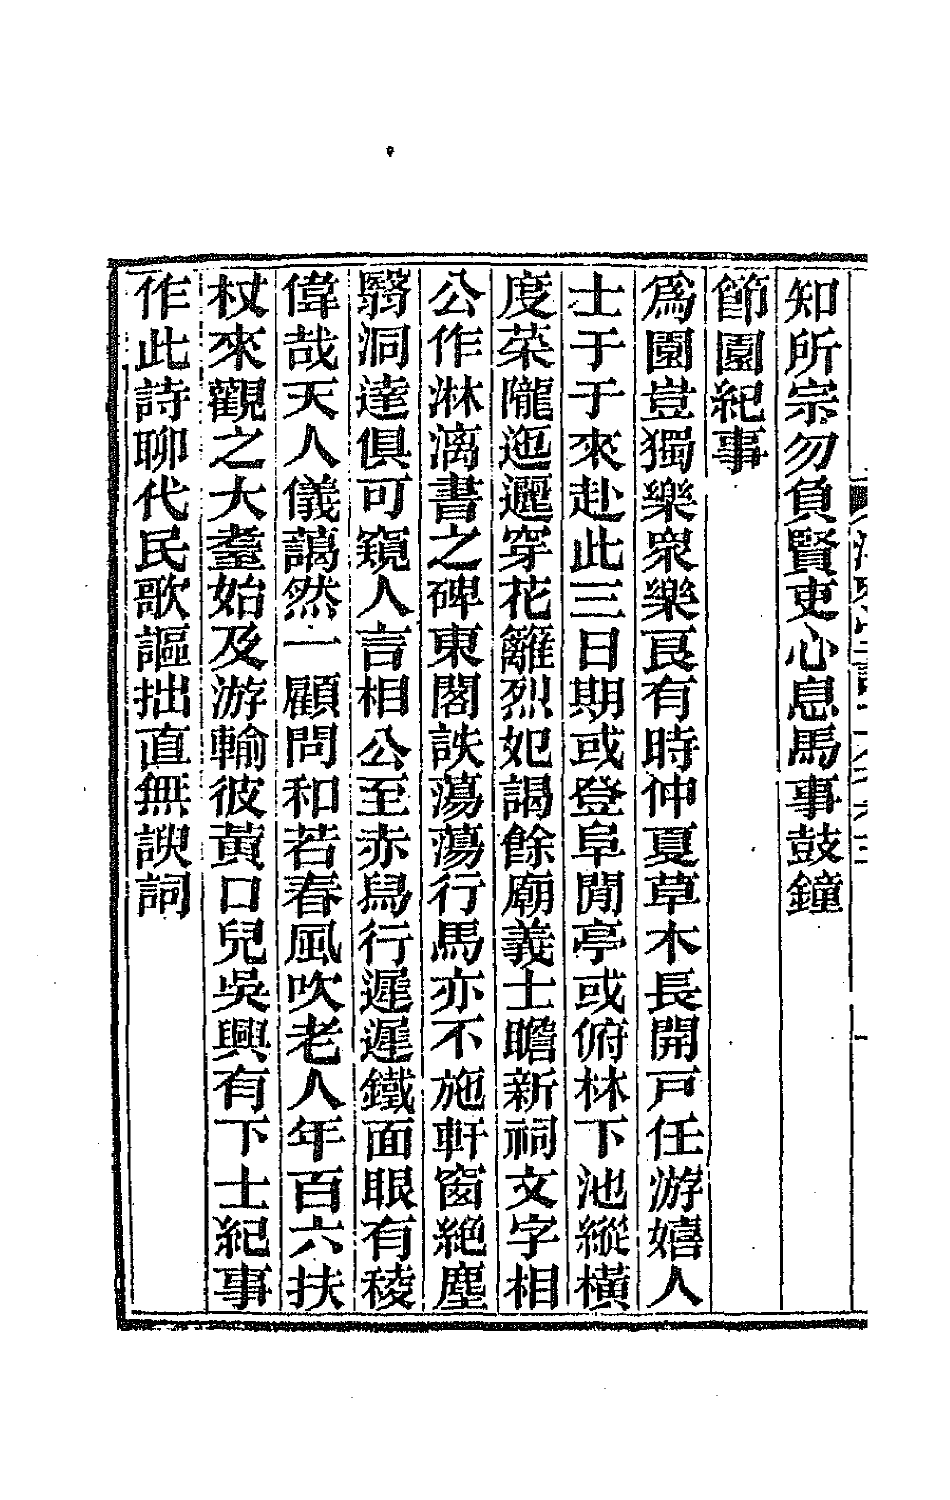 知所宗勿負賢吏心息馬事鼓鐘
節園紀事
爲園豈獨樂衆樂良有時仲夏草木長開戸任游嬉人
士于于來赴此三日期或登阜閒亭或俯林下池縱橫
度菜隴迤邐穿花籬烈妃謁餘廟義士瞻新祠文字相
公作淋漓書之碑東閣詄蕩蕩行馬亦不施軒窗絶塵
翳洞達俱可窺人言相公至赤舄行遲遲鐵面眼有稜
偉哉天人儀藹然一顧問和若春風吹老人年百六扶
杖來觀之大耋始及游輸彼黃口兒吳興有下士紀事
作此詩聊代民歌謳拙直無諛詞